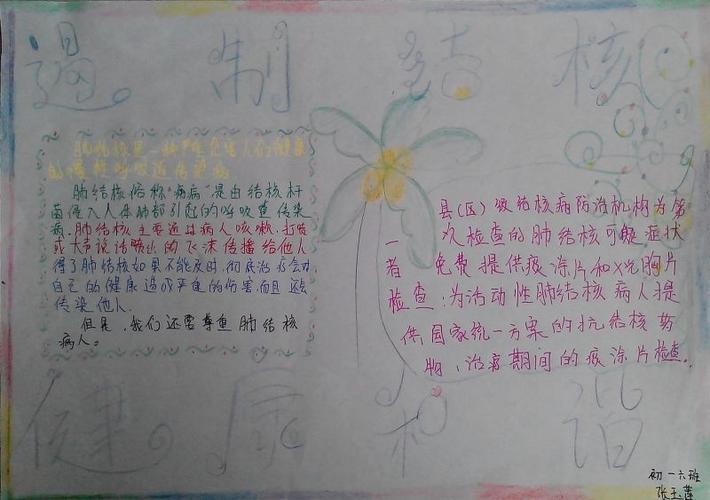 遏制结核
肺结核是一种严重危害人们健康
的慢性呼吸道传染病
肺结核俗称“痨病”是由结核杆
菌侵入人体肺部引起的呼吸道传染
病.肺结核主要通过病人咳嗽.打喷
或大声说话喷出的飞沫传播给他人
得了肺结核如果不能及时.彻底治疗会对
自己的健康造成严重的伤害.而且还会
传染他人.
但是.我们还要尊重肺结核
病人。
县(区)级结核病防治机构为第
一次检查的肺结核可疑症状
者免费提供痰涂片和X光胸片
检查:为活动性肺结核病人提
供国家统一方案的抗结核药
物、治疗期间的痰涂片检查.
健康和谐
初一六班
张玉莲